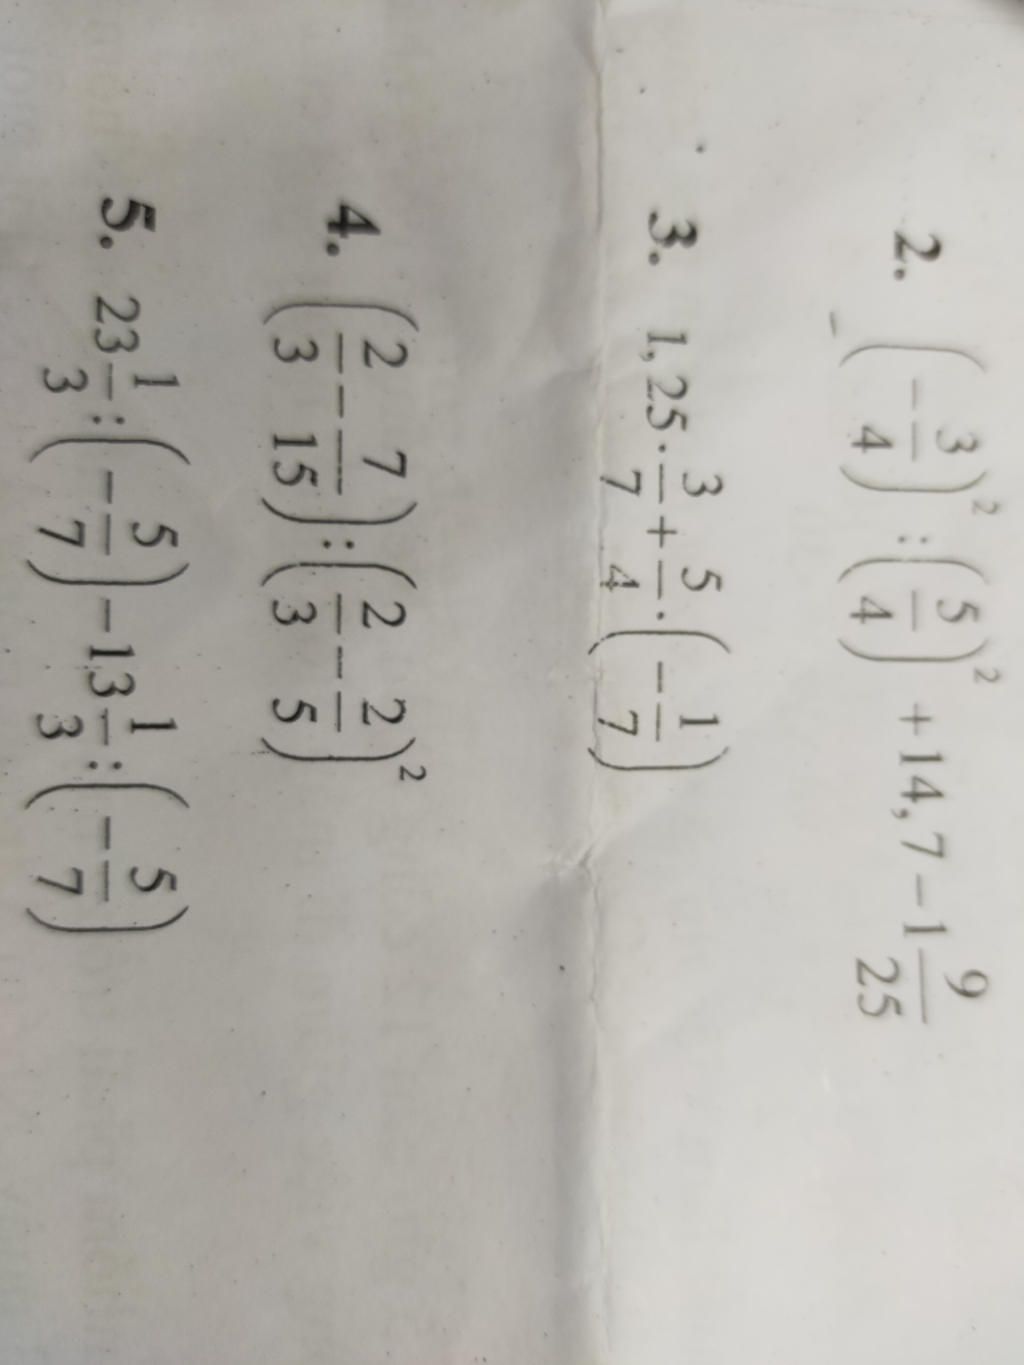 2. (-3/4)² : (5/4)² + 14,7 - 1 9/25
3. 1,25 · 3/7 + 5/4 · (-1/7)
4. (2/3 - 7/15) : (2/3 - 2/5)²
5. 23 1/3 : (-5/7) - 13 1/3 : (-5/7)